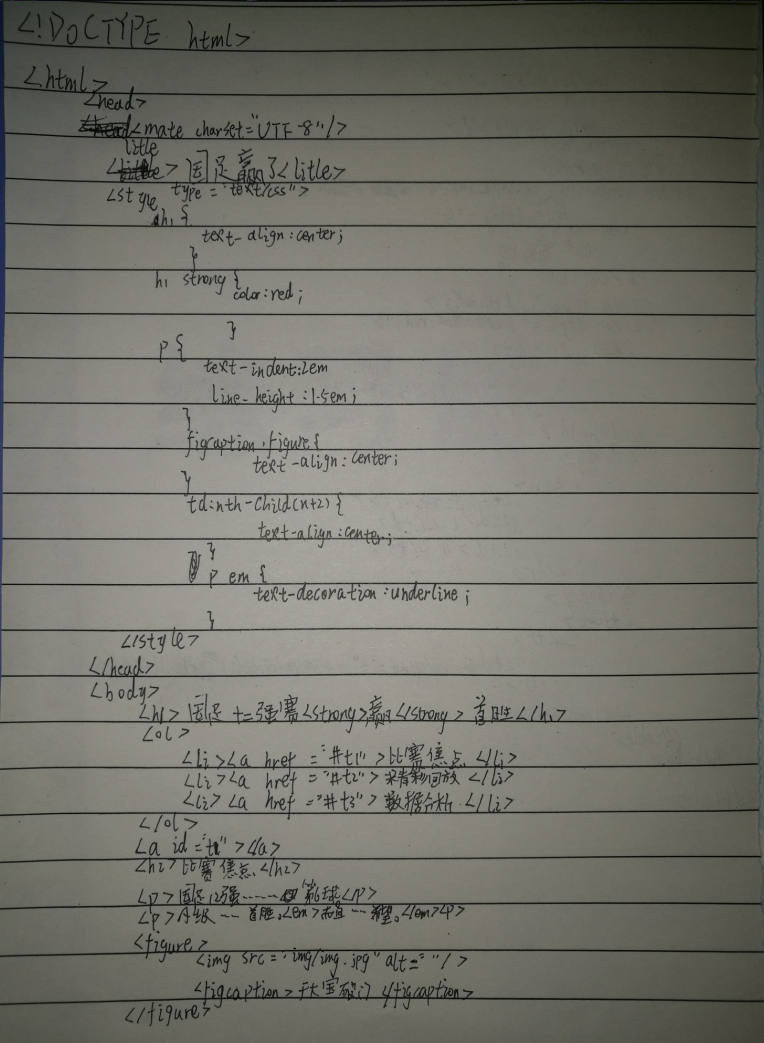 <!DOCTYPE html>
<html>
<head>
<mate charset="UTF-8"/>
<title>国足赢了<title>
<style type="text/css">
h1 {
text-align:center;
}
h1 strong {
color:red;
}
p {
text-indent:2em
line-height:1.5em;
}
figcaption.figure{
text-align:center;
}
td:nth-child(n+2) {
text-align:center;
}
p em {
text-decoration:underline;
}
</style>
</head>
<body>
<h1>国足十二强赛<strong>赢</strong>首胜</h1>
<ol>
<li><a href="#t1">比赛焦点</li>
<li><a href="#t2">精彩回放</li>
<li><a href="#t3">数据分析</li>
</ol>
<a id="t1"></a>
<h2>比赛焦点</h2>
<p>国足12强------ 球<p>
<p> -- 首胜。<em> --希望。</em><p>
<figure>
<img src="img/img.jpg" alt=""/>
<figcaption> </figcaption>
</figure>